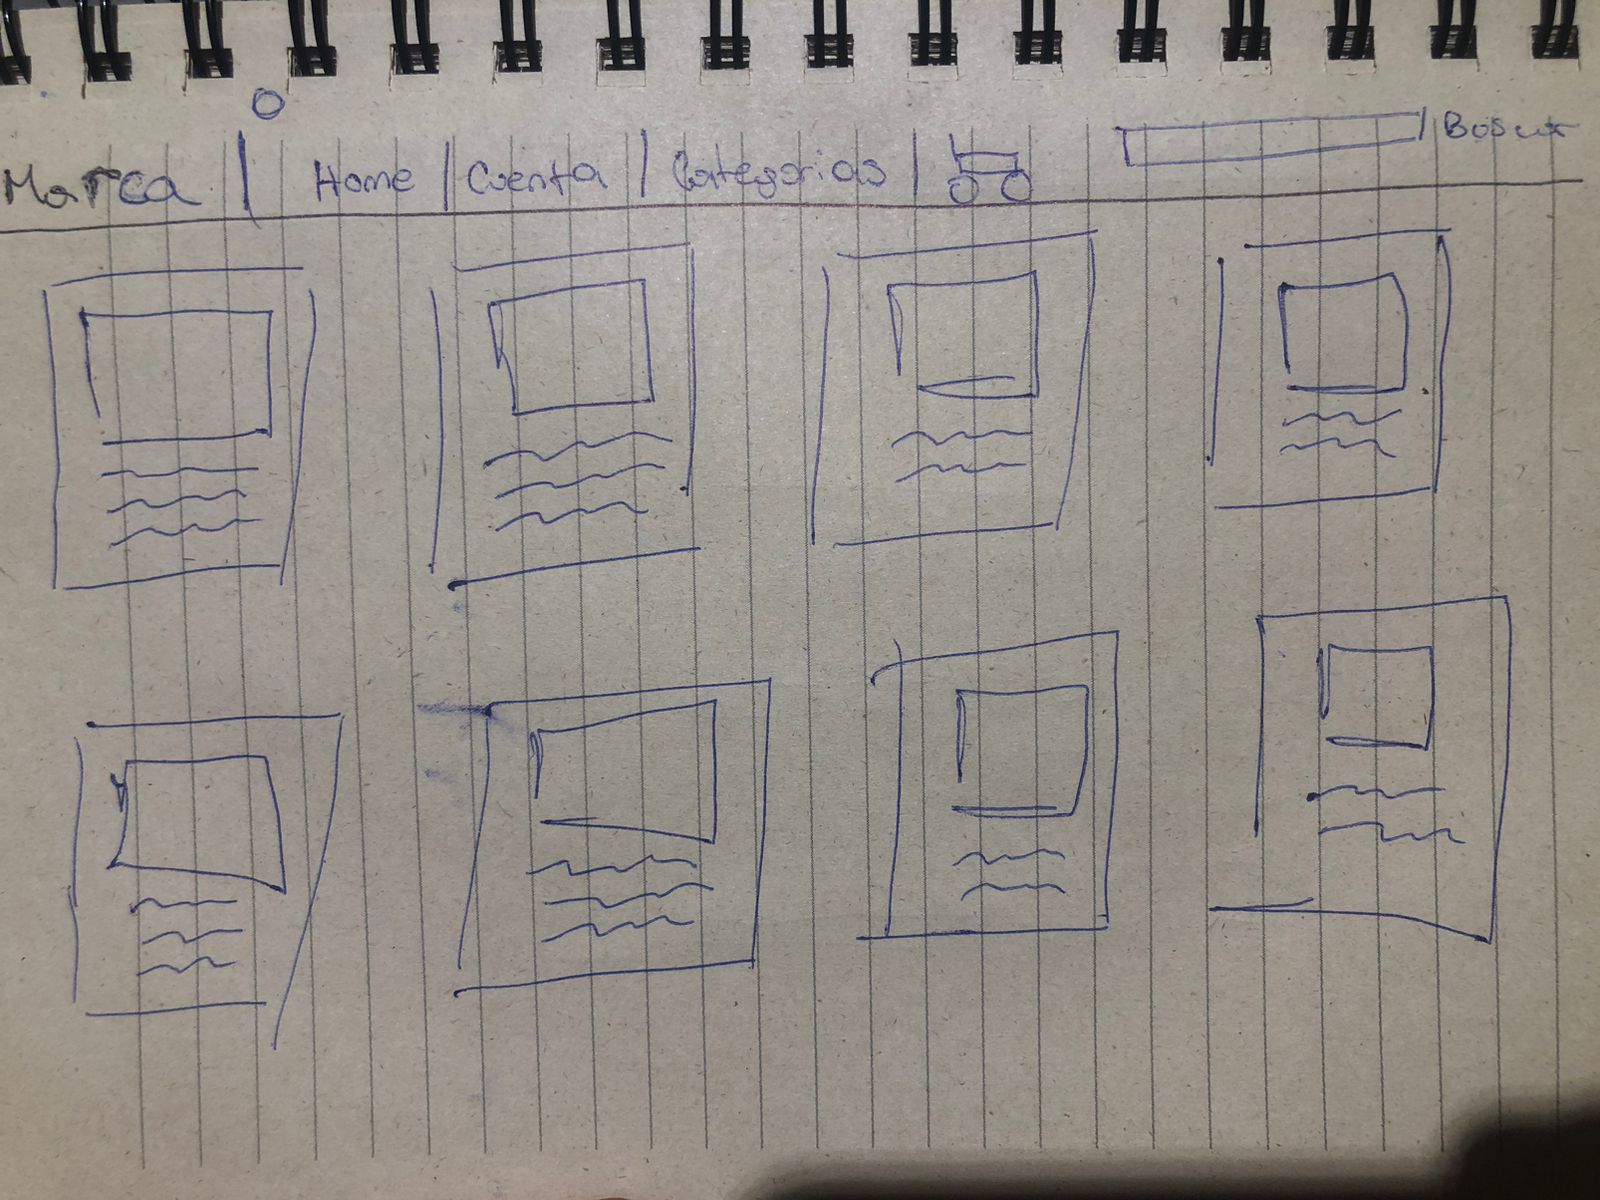 Marca | Home | Cuenta | Categorias | | Buscar